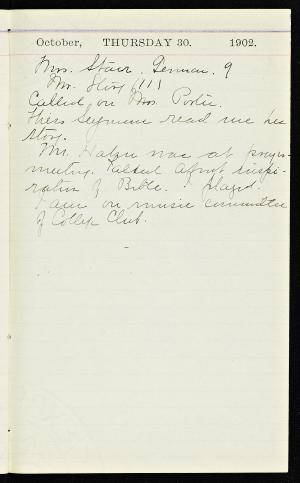 October, THURSDAY 30. 1902.
Mrs. Starr. German. 9
Mr. 111
Called on Mrs. Porter.
Miss Seymour read me her
story.
Mr. was at prayer
meeting. Talked about inspi-
ration of Bible. I played.
I am on music committee
of College Club.